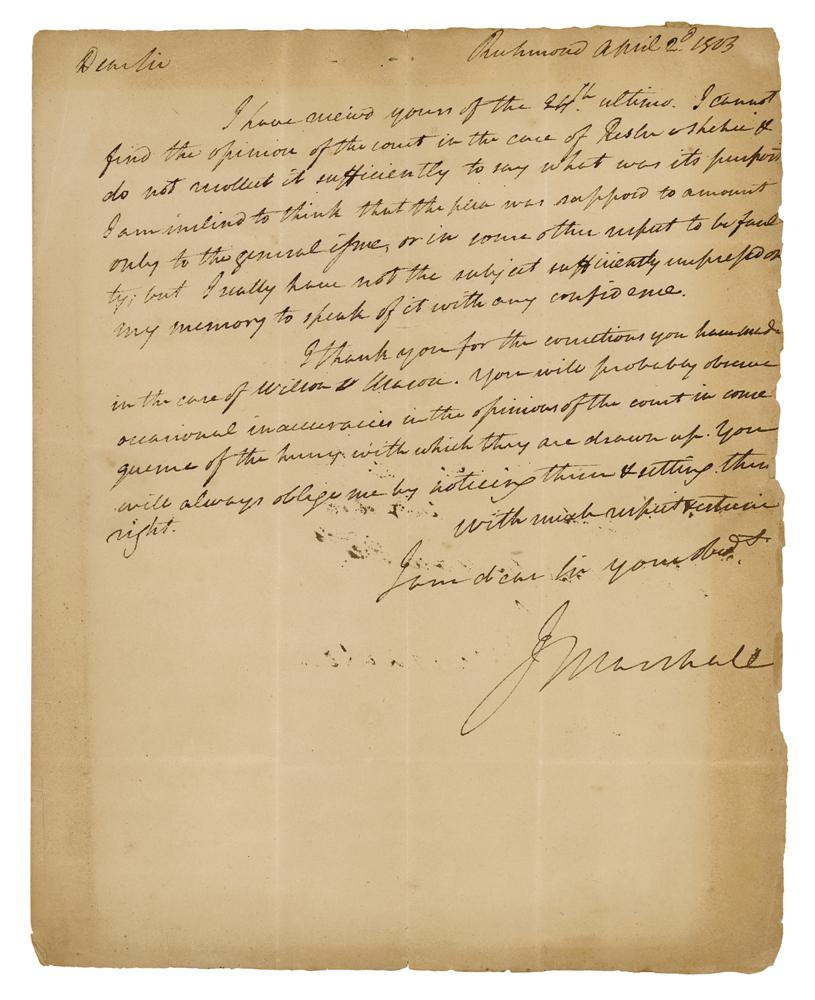 Dear Sir
Richmond April 2d. 1803
I have receivd yours of the 24th. ultimo. I cannot
find the opinion of the court in the case of Resler v Shehee &
do not recollect it sufficiently to say what was its purport
I am inclind to think that the plea was supposd to amount
only to the general issue, or in some other respect to be faul
ty; but I really have not the subject sufficiently impressd on
my memory to speak of it with any confidence.
I thank you for the corrections you have made
in the case of Wilson v Mason. You will probably observe
occasional inaccuracies in the opinions of the court in conse
quence of the hurry with which they are drawn up. You
will always oblige me by noticing them & setting them
right.
with much respect & esteem
I am dear Sir your obedt.
J Marshall